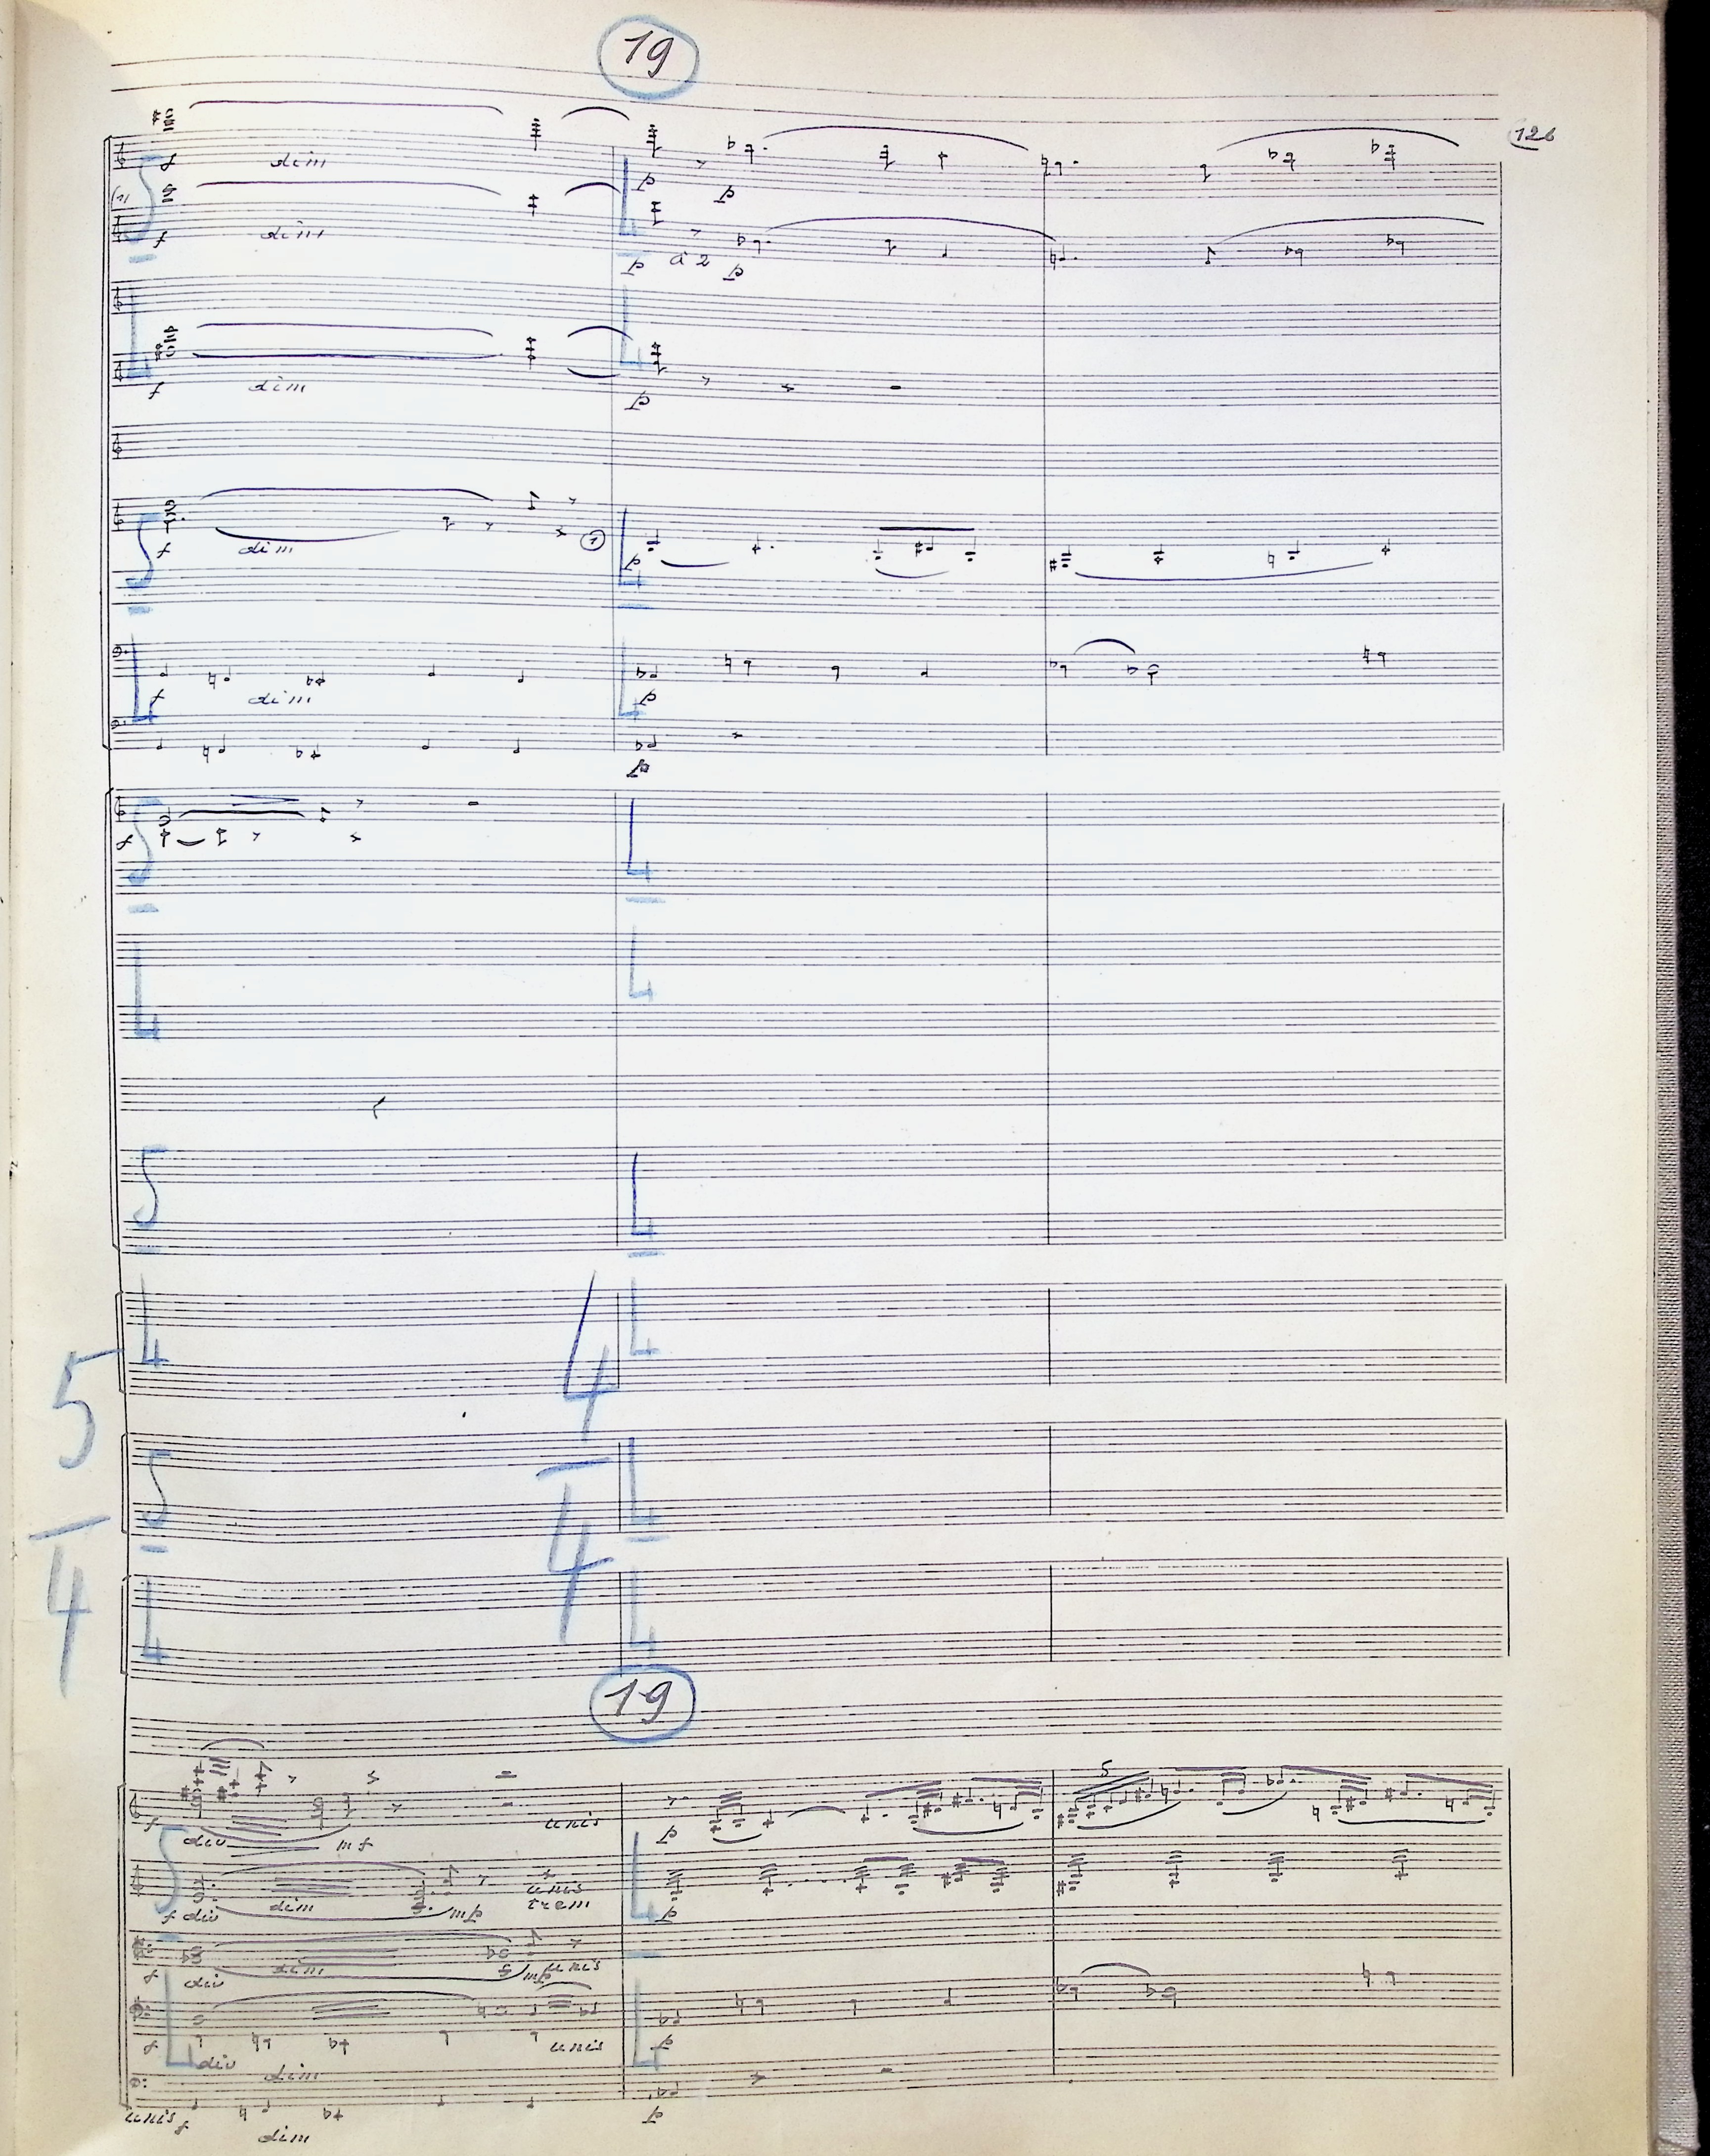 19
126
f dim p p
f dim p à 2 p
f dim p
f dim 1 p
f dim p
p
f
5 4
4 4
19
f div mf unis p 5
f div dim mf unis trem p
f div dim mf unis
f div unis p
dim
unis f dim p